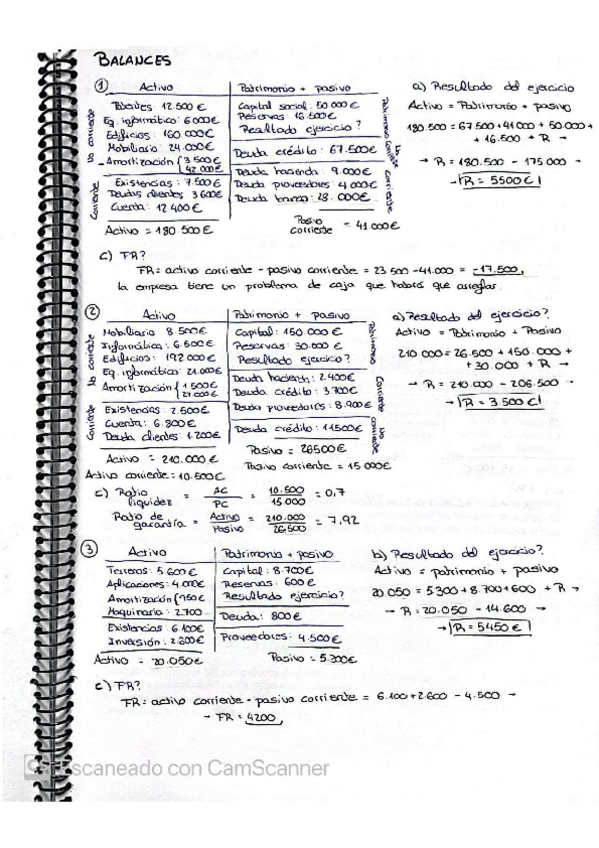 BALANCES
① Activo
Patentes: 12.500€
Eq. informático: 6000€
Edificios: 160.000€
Mobiliario: 24.000€
Amortización { 3500€
42.000€
Existencias: 7.500€
Deudas clientes 3600€
Cuenta: 12400€
Activo = 180 500€
No corriente
Corriente
Patrimonio + pasivo
Capital social: 50000€
Reservas: 16.500€
Resultado ejercicio?
Deuda crédito: 67.500€
Deuda hacienda: 9.000€
Deuda proveedores: 4000€
Deuda banco: 28.000€
Pasivo corriente = 41000€
Patrimonio
No corriente
Corriente
a) Resultado del ejercicio
Activo = Patrimonio + pasivo
180.500 = 67500 + 41000 + 50.000 +
+ 16.500 + R →
→ R = 180.500 - 175000 →
→ R = 5500€
c) FR?
FR = activo corriente - pasivo corriente = 23 500 - 41.000 = -17.500,
la empresa tiene un problema de caja que habrá que arreglar.
② Activo
Mobiliario 8.500€
Informática: 6.500€
Edificios: 192.000€
Eq. informático: 21.000€
Amortización { 1500€
27.000€
Existencias: 2.500€
Cuenta: 6.800€
Deuda clientes: 1.200€
Activo = 210.000€
Activo corriente = 10.500€
No corriente
Corriente
Patrimonio + pasivo
Capital: 150 000€
Reservas: 30.000€
Resultado ejercicio?
Deuda hacienda: 2.400€
Deuda crédito: 3.700€
Deuda proveedores: 8.900€
Deuda crédito: 11500€
Pasivo = 26500€
Pasivo corriente = 15.000€
Patrimonio
Corriente
No corriente
a) Resultado del ejercicio?
Activo = Patrimonio + Pasivo
210.000 = 26.500 + 150.000 +
+ 30.000 + R →
→ R = 210.000 - 206.500 →
→ R = 3.500€
c) Ratio liquidez = AC / PC = 10.500 / 15.000 = 0,7
Ratio de garantía = Activo / Pasivo = 210.000 / 26.500 = 7,92
③ Activo
Terrenos: 5.600€
Aplicaciones: 4.000€
Amortización { 950€
Maquinaria: 2.700
Existencias 6.100€
Inversión: 2.600€
Activo = 20.050€
Patrimonio + pasivo
Capital: 8.700€
Reservas: 600€
Resultado ejercicio?
Deuda: 800€
Proveedores: 4.500€
Pasivo = 5.300€
b) Resultado del ejercicio?
Activo = patrimonio + pasivo
20.050 = 5300 + 8.700 + 600 + R →
→ R = 20.050 - 14.600 →
→ R = 5450€
c) FR?
FR = activo corriente - pasivo corriente = 6.100 + 2.600 - 4.500 →
→ FR = 4200
Escaneado con CamScanner